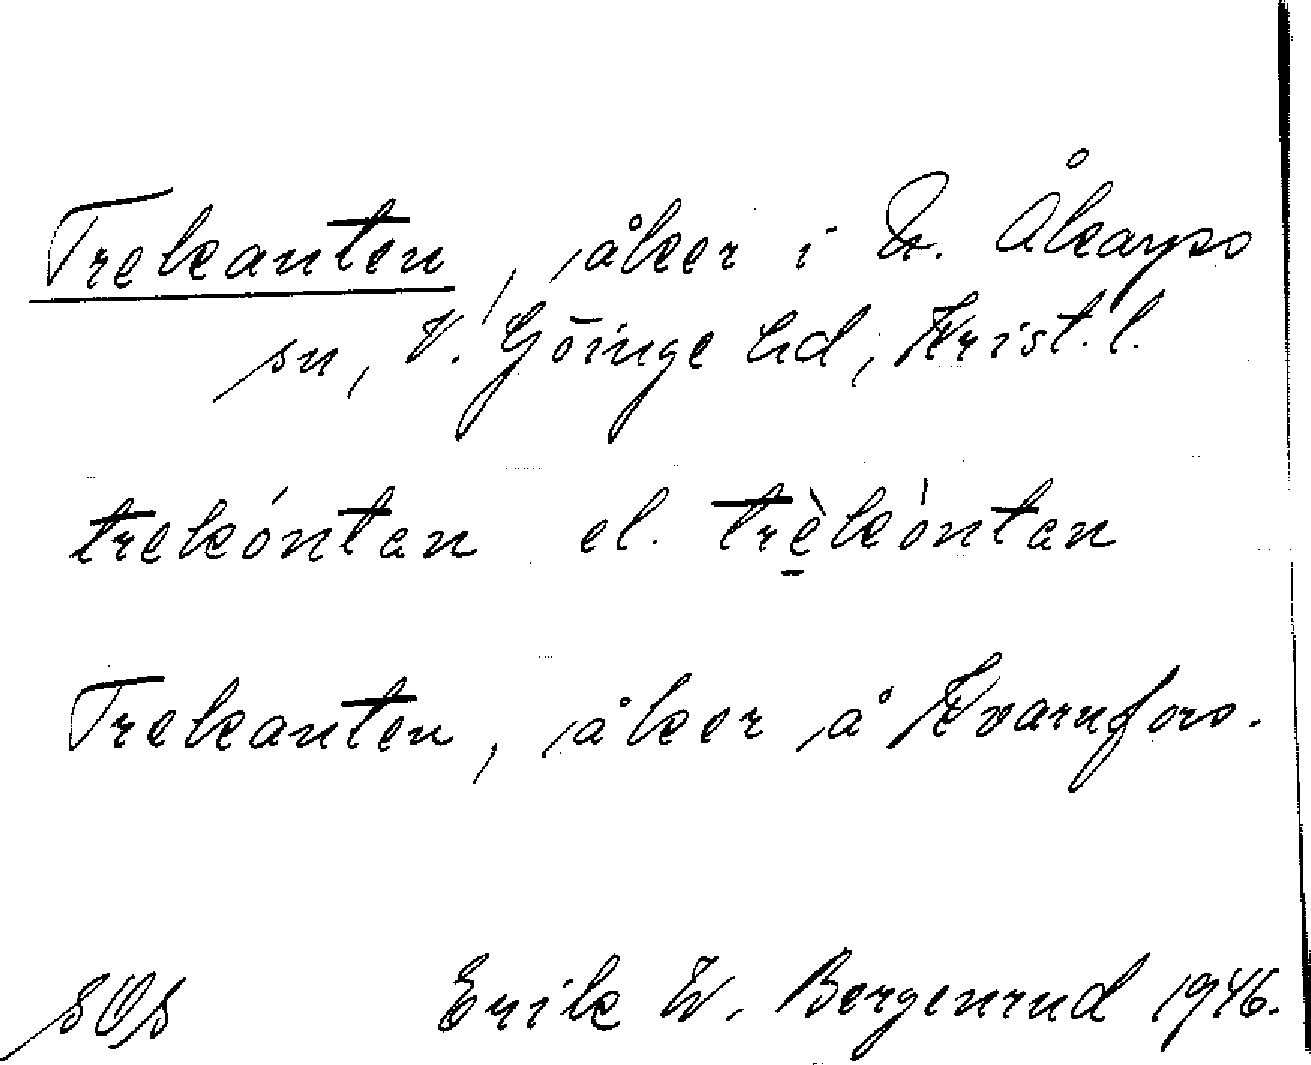 Trekanten, åker i N. Åkarps
sn, V. Göinge hd, Krist. l.
trekóntan el. trèkòntan
Trekanten, åker å Kvarnfors.
SOS Erik W. Bergenrud 1946.